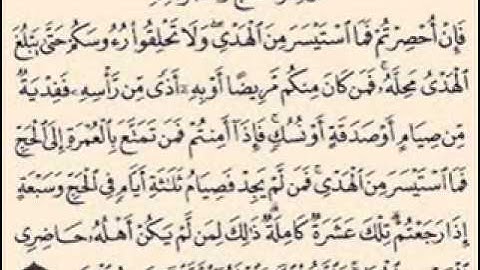 فَإِنْ أُحْصِرْتُمْ فَمَا ٱسْتَيْسَرَ مِنَ ٱلْهَدْىِ وَلَا تَحْلِقُوا۟ رُءُوسَكُمْ حَتَّىٰ يَبْلُغَ
ٱلْهَدْىُ مَحِلَّهُۥ فَمَن كَانَ مِنكُم مَّرِيضًا أَوْ بِهِۦٓ أَذًى مِّن رَّأْسِهِۦ فَفِدْيَةٌ
مِّن صِيَامٍ أَوْ صَدَقَةٍ أَوْ نُسُكٍ فَإِذَآ أَمِنتُمْ فَمَن تَمَتَّعَ بِٱلْعُمْرَةِ إِلَى ٱلْحَجِّ
فَمَا ٱسْتَيْسَرَ مِنَ ٱلْهَدْىِ فَمَن لَّمْ يَجِدْ فَصِيَامُ ثَلَٰثَةِ أَيَّامٍ فِى ٱلْحَجِّ وَسَبْعَةٍ
إِذَا رَجَعْتُمْ تِلْكَ عَشَرَةٌ كَامِلَةٌ ذَٰلِكَ لِمَن لَّمْ يَكُنْ أَهْلُهُۥ حَاضِرِى